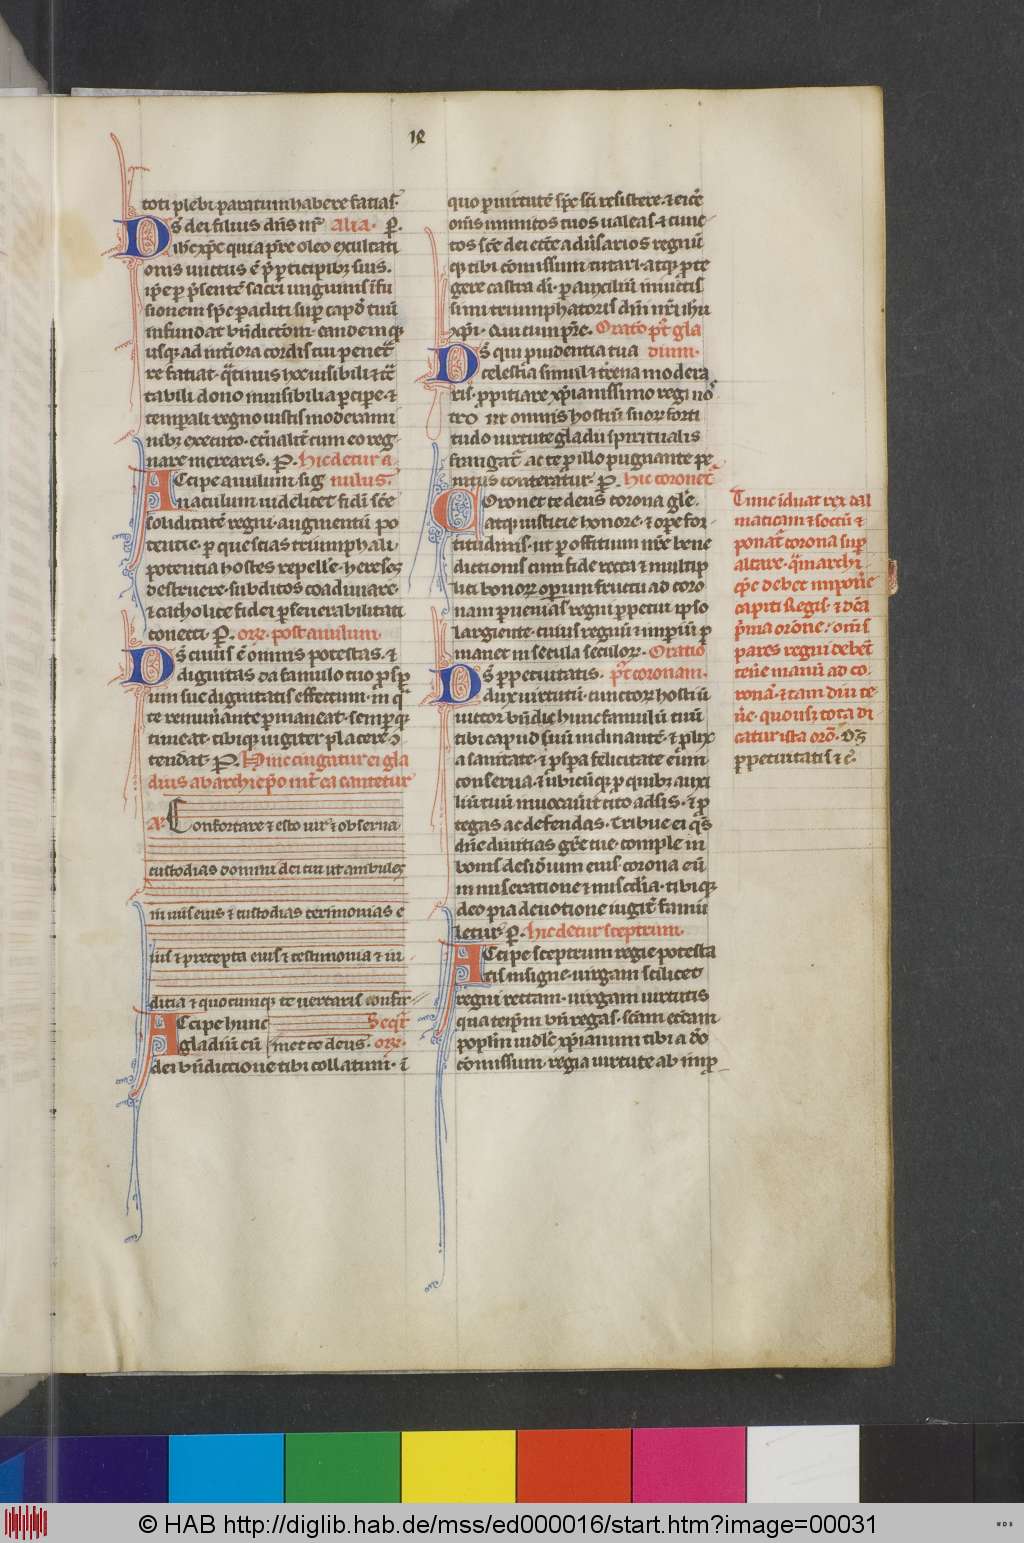 18
toti plebi paratum habere faciaſ.
Dſ̄ dei filius dñs nr̄ Alia. ꝑ.
ih̄c xp̄c quia pr̄e oleo exultati
onis unctus ē p̄ꝑticipibꝫ suis.
ip̄e ꝑ p̄sentē sacri unguinis īfu
sionem sp̄c paracliti suꝑ capd̄ tuū
infundat bn̄dictōm. eandemqꝫ
usqꝫ ad int̄iora cordis tui penet̄
re faciat. qt̄inus hoc uisibili ⁊ t̄c
tabili dono inuisibilia ꝑcipe. ⁊
tempali regno iustis moderami
nibꝫ executo. et̄nalit̄ cum eo reg
nare merearis. P. Hic detur a
ACcipe anulum sig nulus.
naculum uidelicet fidi sc̄e
soliditatē regni. augmentū po
tentie. ꝑ que scias triumphali.
potentia hostes repelle. hereseꝫ
destruere. subditos coadunare.
⁊ catholice fidei ꝑseuerabilitati
conecti. P. or̄e. post anulum.
Dſ̄ cuius ē omnis potestas. ⁊
dignitas da famulo tuo ꝓsꝑ
um sue dignitatis effectum. in q̄
te remun̄ante ꝑmaneat. semꝑqꝫ
timeat. tibiqꝫ iugiter placere ↄ
tendat. P. Hinc cingatur ei gla
dius ab archiep̄o int̄ ea cantetur
A. Confortare ⁊ esto uir ⁊ obserua
custodias domini dei tui ut ambuleꝫ
in uiis eius ⁊ custodias cerimonias e
ius ⁊ precepta eius ⁊ testimonia ⁊ iu
dicia ⁊ quocumqꝫ te uertaris confir
ACcipe hunc Seqr̄
gladiū cū met te deus. or̄e.
dei bn̄dictione tibi collatum. ī
quo ꝑ uirtutē sp̄c sc̄i resistere. ⁊ eic̄e
om̄s inimicos tuos ualeaſ. ⁊ cunc
tos sc̄e dei ecc̄e adūsarios regnū
qꝫ tibi cōmissum tutari. atqꝫ ꝓte
gere castra di. ꝑ auxiliū inuictis
simi triumphatoris dn̄i nr̄i ihū
xp̄i. Qui cum pr̄e. Oratō pꝰt gla
Dſ̄ qui ꝓuidentia tua dium.
celestia simul ⁊ tr̄ena modera
ris. ꝓpitiare xp̄ianissimo regi no
tro ut omnis hostiū suoꝝ forti
tudo uirtute gladii spiritualis
frangat̄ ac te ꝓ illo pugnante pe
nitus conteratur. P. hic coronet̄
COronet te deus corona gl̄e.
atqꝫ iusticie honore. ⁊ oꝑe for
titudinis. ut ꝑ offitium nr̄e bene
dictionis cum fide recta ⁊ multip
lici bonoꝝ oꝑum fructu ad coro
nam ꝑuenias regni ꝑpetui ip̄o
largiente. cuius regnū ⁊ imꝑiū ꝑ
manet in secula seculoꝝ. Oratio
Dſ̄ ꝑpetuitatis. pꝰt coronam.
dux uirtutū. cunctoꝝ hostiū
uictor. bn̄dic hunc famulū tuū
tibi caput suū inclinantē. ⁊ ꝓlix
a sanitate. ⁊ ꝓspa felicitate eum
conserua. ⁊ ubicūqꝫ. ꝓ quibꝫ auxi
liū tuū inuocau̾it cito adsis. ⁊ ꝓ
tegas ac defendas. Tribue ei qs̄
dn̄e diuitias gr̄e tue. comple in
bonis desid̄ium eius. corona eū
in miseratione ⁊ misc̄dia. tibiqꝫ
deo pia deuotione iugit̄ famu
letur. P. hic detur sceptrum.
ACcipe sceptrum regie potesta
tis insigne. uirgam scilicet
regni rectam. uirgam uirtutis
qua teip̄m bn̄ regas. sc̄am ecc̄am
popl̄m uidl̄c xp̄ianum tibi a do
cōmissum. regia uirtute ab imp̱
Tunc īduat rex dal
maticam ⁊ soccū ⁊
ponat̄ corona suꝑ
altare. qm̄ archi
ep̄c debet imponēe
capiti Regis. ⁊ dc̄a
p̄ma or̄one. om̄s
pares regni debēt
ten̄e manū ad co
ronā. ⁊ tam diu te
n̄e. quousꝫ tota di
catur ista orō. Dſ̄
ꝑpetuitatis ⁊ c̄.
© HAB http://diglib.hab.de/mss/ed000016/start.htm?image=00031